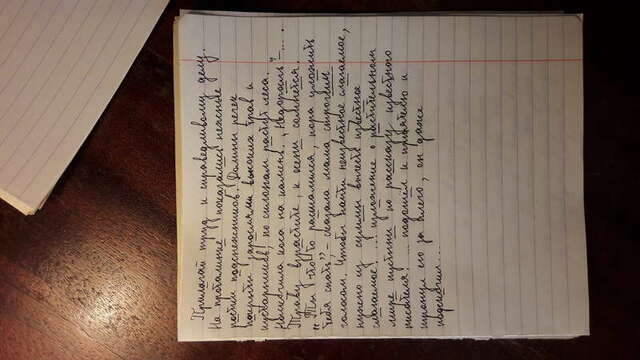 Прилагай труд к справедливому делу.
На проталинке показались нежные
ростки подснежников. Долины речек
покрыты зарослями высоких трав и
кустарников, по склонам растут леса.
Наскочила коса на камень. „Недоросль"....
Траву врастите, к жени сомнется.
„Ты что-то расшалился, пора уложить
тебя спать" - сказала мама строгим
голосом. Чтобы найти неизвестное слагаемое,
нужно из суммы вычесть известное
слагаемое. ... изложение о растительном
мире пустыни по рассказу известного
писателя. ... подошёл к приятелю и
тронул его за плечо, он даже
подскочил...